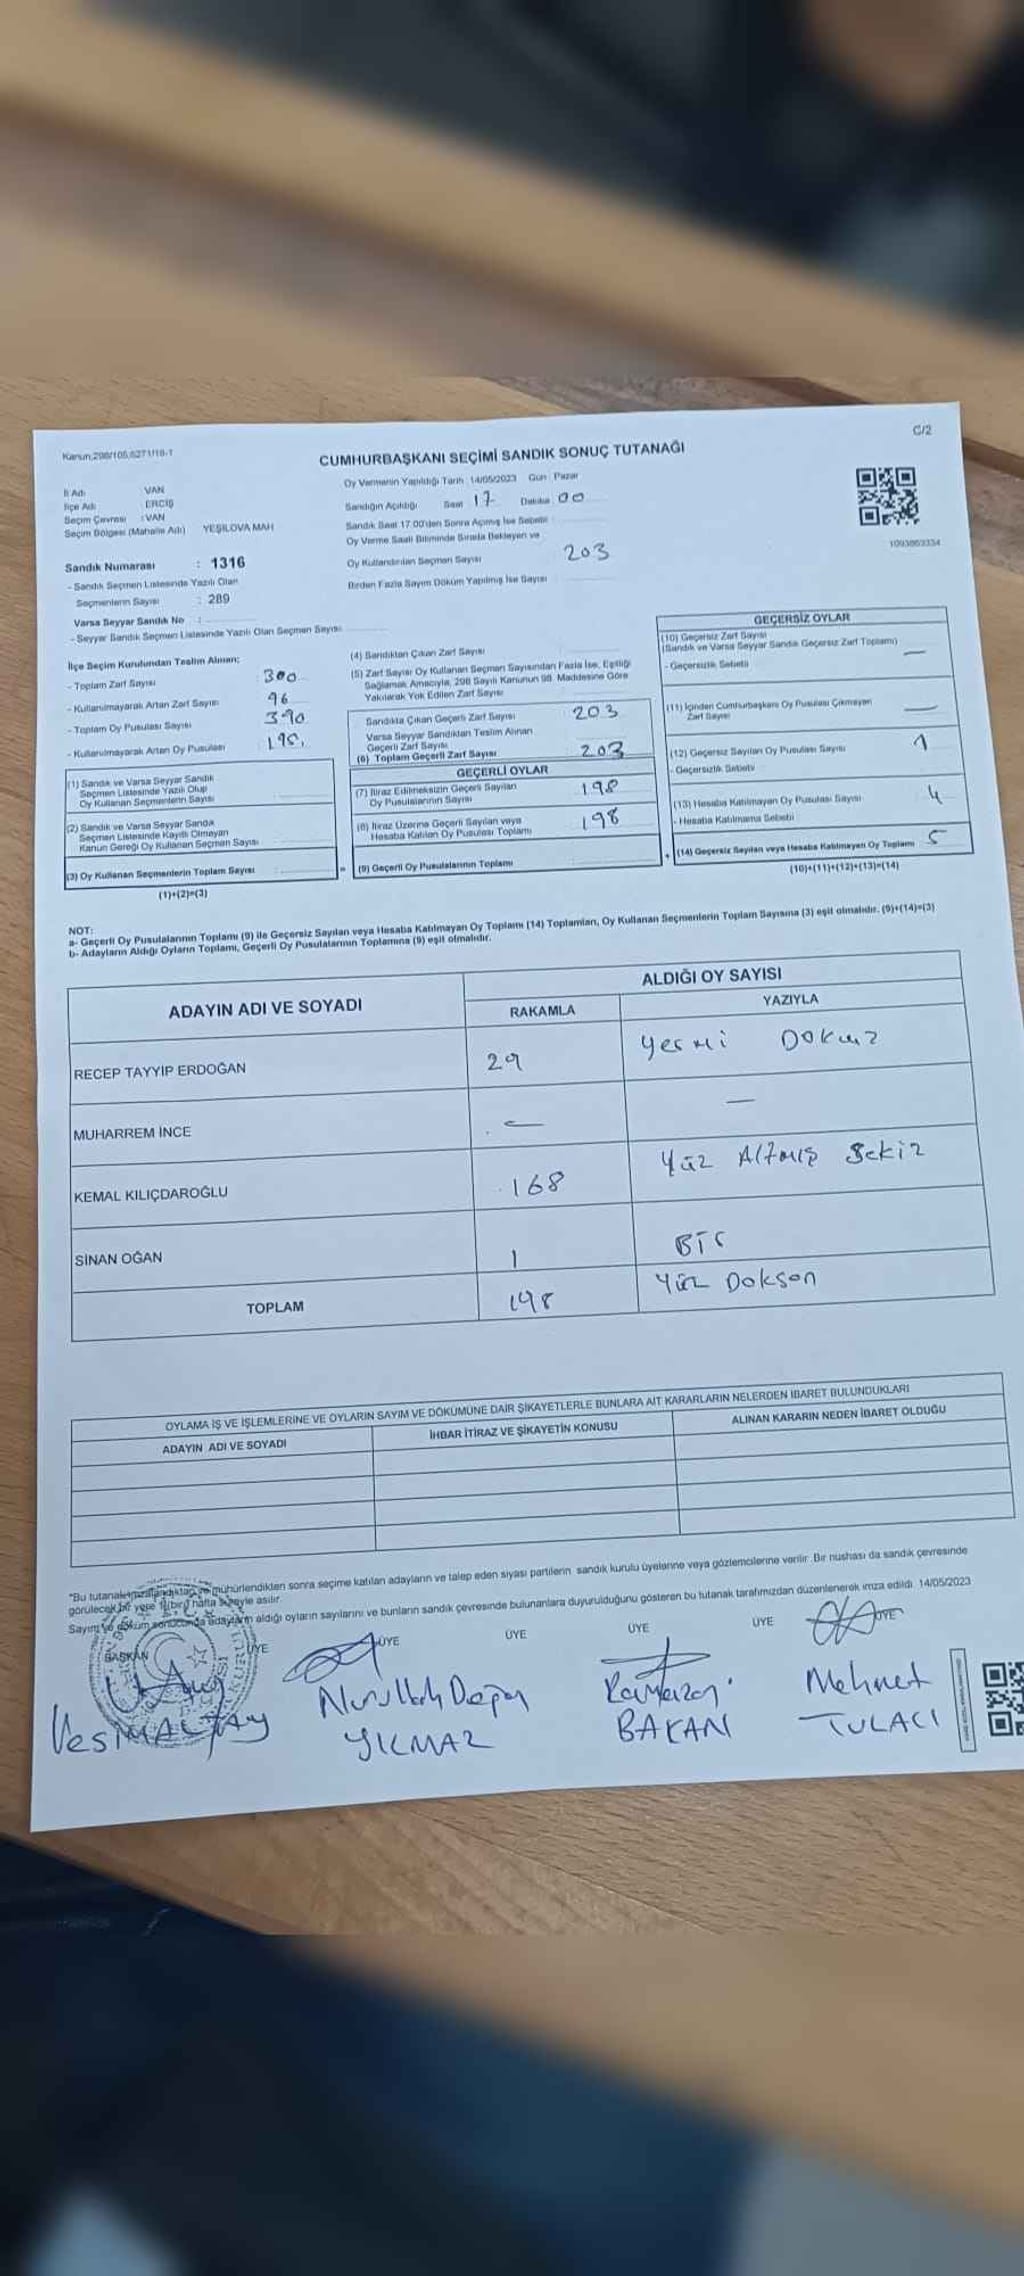 C/2
Kanun:298/105,6271/18-1
CUMHURBAŞKANI SEÇİMİ SANDIK SONUÇ TUTANAĞI
İl Adı : VAN
İlçe Adı : ERCİŞ
Seçim Çevresi : VAN
Seçim Bölgesi (Mahalle Adı) YEŞİLOVA MAH
Sandık Numarası : 1316
- Sandık Seçmen Listesinde Yazılı Olan
Seçmenlerin Sayısı : 289
Varsa Seyyar Sandık No :
- Seyyar Sandık Seçmen Listesinde Yazılı Olan Seçmen Sayısı
Oy Vermenin Yapıldığı Tarih 14/05/2023 Gün Pazar
Sandığın Açıldığı Saat 17 Dakika 00
Sandık Saat 17.00'den Sonra Açılmış İse Sebebi
Oy Verme Saati Bitiminde Sırada Bekleyen ve
Oy Kullandırılan Seçmen Sayısı 203
Birden Fazla Sayım Döküm Yapılmış İse Sayısı
1093863334
İlçe Seçim Kurulundan Teslim Alınan;
- Toplam Zarf Sayısı : 300
- Kullanılmayarak Artan Zarf Sayısı 96
- Toplam Oy Pusulası Sayısı 390
- Kullanılmayarak Artan Oy Pusulası
(1) Sandık ve Varsa Seyyar Sandık
Seçmen Listesinde Yazılı Olup
Oy Kullanan Seçmenlerin Sayısı
(2) Sandık ve Varsa Seyyar Sandık
Seçmen Listesinde Kayıtlı Olmayan
Kanun Gereği Oy Kullanan Seçmen Sayısı
(3) Oy Kullanan Seçmenlerin Toplam Sayısı
(1)+(2)=(3)
(4) Sandıktan Çıkan Zarf Sayısı
(5) Zarf Sayısı Oy Kullanan Seçmen Sayısından Fazla İse, Eşitliği
Sağlamak Amacıyla, 298 Sayılı Kanunun 98. Maddesine Göre
Yakılarak Yok Edilen Zarf Sayısı
Sandıkta Çıkan Geçerli Zarf Sayısı 203
Varsa Seyyar Sandıktan Teslim Alınan
Geçerli Zarf Sayısı
(6) Toplam Geçerli Zarf Sayısı 203
GEÇERLİ OYLAR
(7) İtiraz Edilmeksizin Geçerli Sayılan
Oy Pusulalarının Sayısı 198
(8) İtiraz Üzerine Geçerli Sayılan veya
Hesaba Katılan Oy Pusulası Toplamı 198
(9) Geçerli Oy Pusulalarının Toplamı
GEÇERSİZ OYLAR
(10) Geçersiz Zarf Sayısı
(Sandık ve Varsa Seyyar Sandık Geçersiz Zarf Toplamı) —
- Geçersizlik Sebebi
(11) İçinden Cumhurbaşkanı Oy Pusulası Çıkmayan
Zarf Sayısı —
(12) Geçersiz Sayılan Oy Pusulası Sayısı 1
- Geçersizlik Sebebi
(13) Hesaba Katılmayan Oy Pusulası Sayısı 4
- Hesaba Katılmama Sebebi
(14) Geçersiz Sayılan veya Hesaba Katılmayan Oy Toplamı 5
(10)+(11)+(12)+(13)=(14)
NOT:
a- Geçerli Oy Pusulalarının Toplamı (9) ile Geçersiz Sayılan veya Hesaba Katılmayan Oy Toplamı (14) Toplamları, Oy Kullanan Seçmenlerin Toplam Sayısına (3) eşit olmalıdır. (9)+(14)=(3)
b- Adayların Aldığı Oyların Toplamı, Geçerli Oy Pusulalarının Toplamına (9) eşit olmalıdır.
ADAYIN ADI VE SOYADI
ALDIĞI OY SAYISI
RAKAMLA YAZIYLA
RECEP TAYYIP ERDOĞAN 29 Yermi Dokuz
MUHARREM İNCE — —
KEMAL KILIÇDAROĞLU 168 Yüz Altmış Sekiz
SİNAN OĞAN 1 Bir
TOPLAM 198 Yüz Dokson
OYLAMA İŞ VE İŞLEMLERİNE VE OYLARIN SAYIM VE DÖKÜMÜNE DAİR ŞİKAYETLERLE BUNLARA AİT KARARLARIN NELERDEN İBARET BULUNDUKLARI
ADAYIN ADI VE SOYADI İHBAR İTİRAZ VE ŞİKAYETİN KONUSU ALINAN KARARIN NEDEN İBARET OLDUĞU
"Bu tutanak imzalandıktan ve mühürlendikten sonra seçime katılan adayların ve talep eden siyasi partilerin sandık kurulu üyelerine veya gözlemcilerine verilir. Bir nushası da sandık çevresinde
görülecek bir yere 1(bir) hafta süreyle asılır.
Sayım ve döküm sonucunda adayların aldığı oyların sayılarını ve bunların sandık çevresinde bulunanlara duyurulduğunu gösteren bu tutanak tarafımızdan düzenlenerek imza edildi. 14/05/2023
BAŞKAN ÜYE ÜYE ÜYE ÜYE ÜYE ÜYE
Nurullah Ramazan Mehmet
YILMAZ BAKAN TULACI